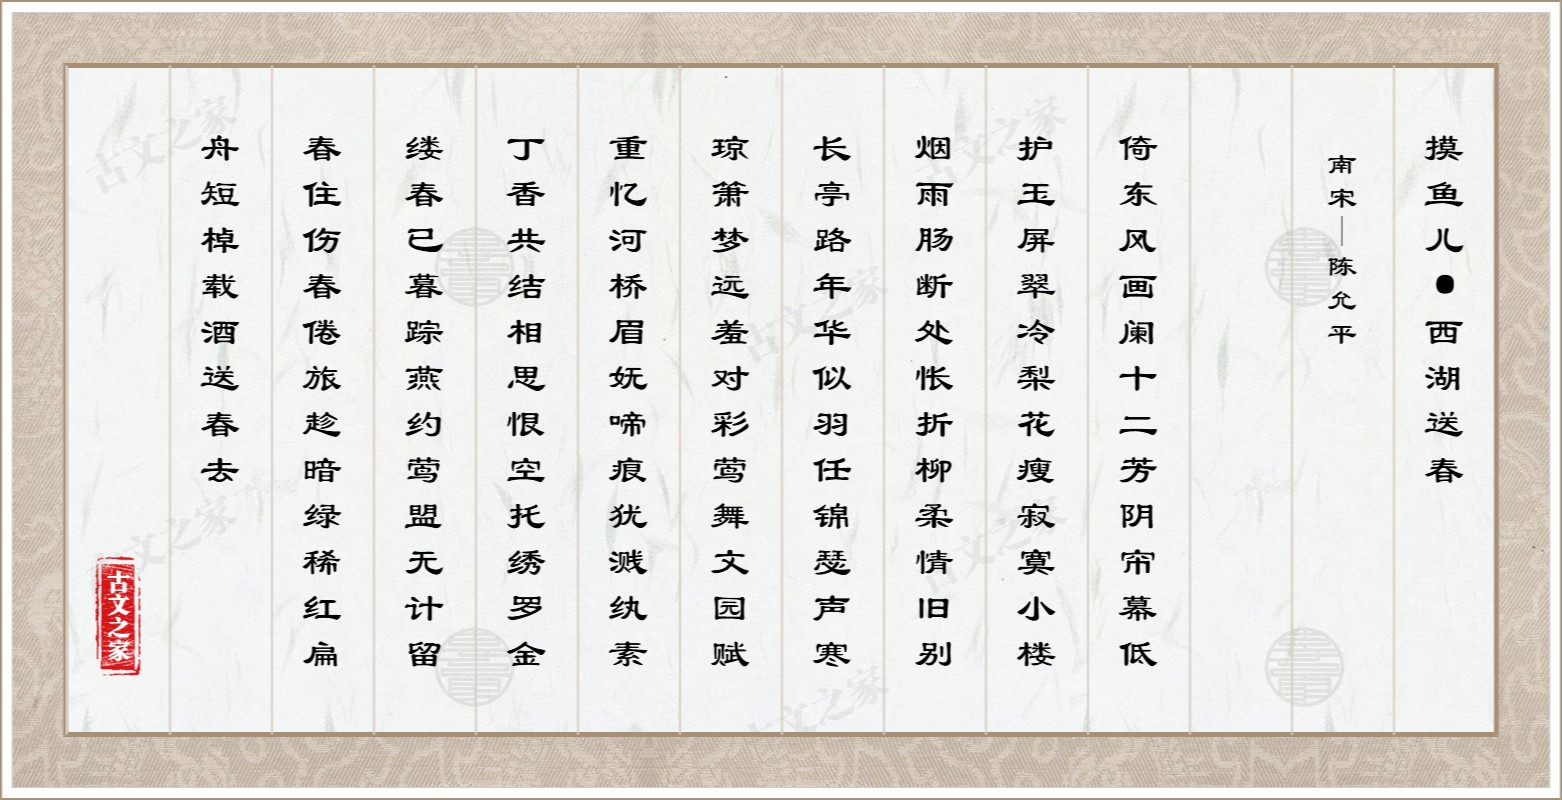 摸鱼儿•西湖送春
南宋—陈允平
倚东风画阑十二芳阴帘幕低
护玉屏翠冷梨花瘦寂寞小楼
烟雨肠断处怅折柳柔情旧别
长亭路年华似羽任锦瑟声寒
琼箫梦远羞对彩莺舞文园赋
重忆河桥眉妩啼痕犹溅纨素
丁香共结相思恨空托绣罗金
缕春已暮踪燕约莺盟无计留
春住伤春倦旅趁暗绿稀红扁
舟短棹载酒送春去
古文之家
古文之家
古文之家
古文之家
古文之家
古文之家
古文之家